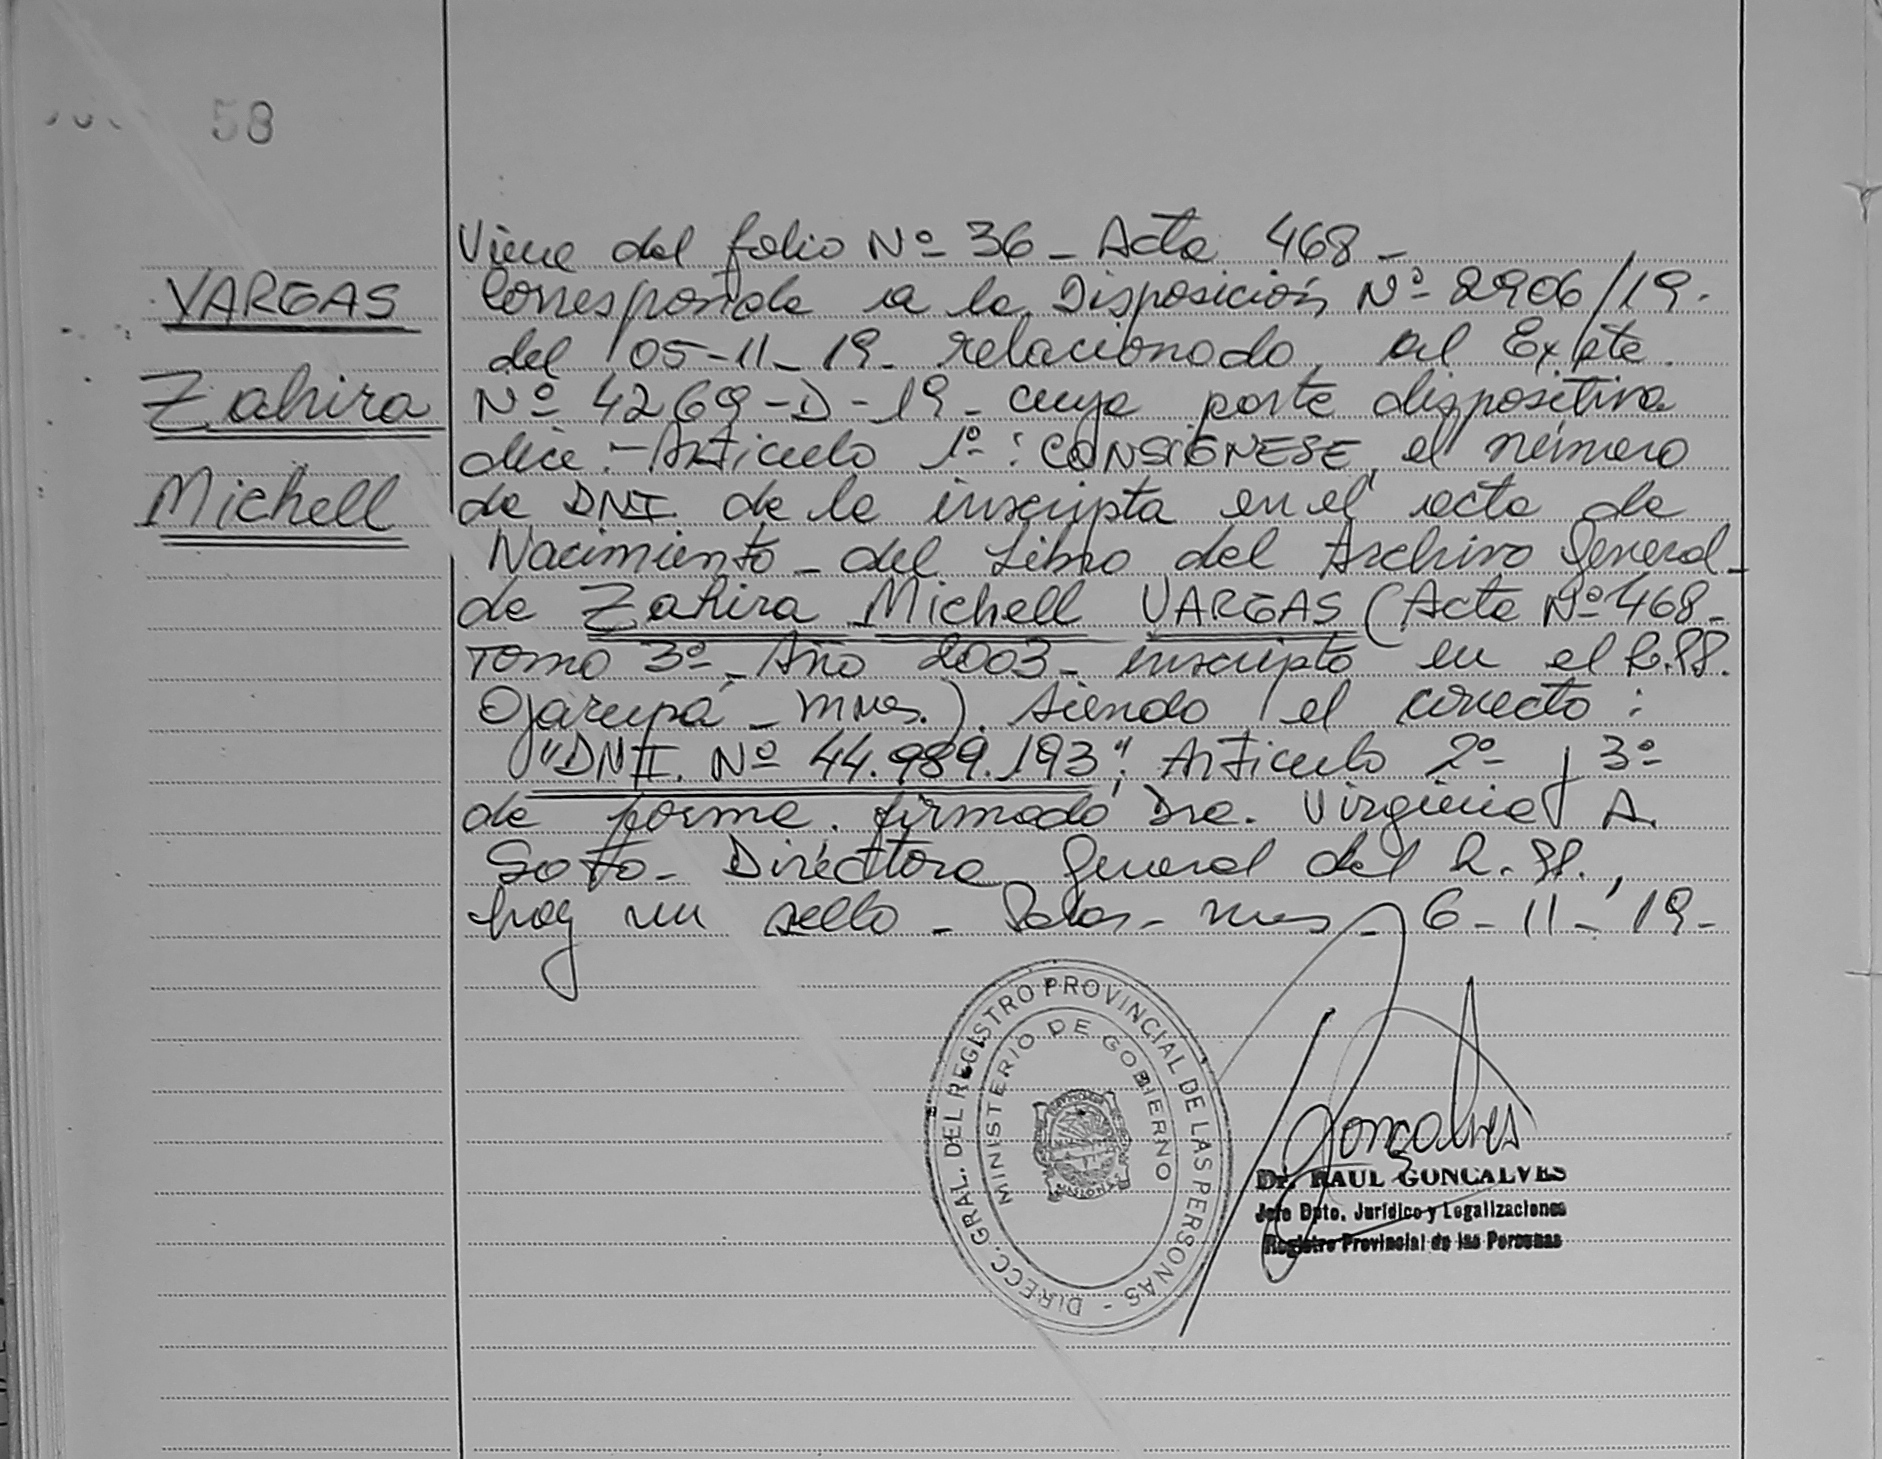 58
VARGAS
Zahira
Michell
Viene del folio Nº 36 - Acta 468 -
Corresponde a la Disposición Nº 2906/19.
del 05-11-19- relacionado al Expte.
Nº 4269-D-19- cuya parte dispositiva
dice:- Articulo 1º: CONSIGNESE, el número
de DNI. de la inscripta en el acta de
Nacimiento - del Libro del Archivo General-
de Zahira Michell VARGAS (Acta Nº 468-
Tomo 3º- Año 2003- inscripto en el R.PP.
Garupá - Mnes.). siendo el correcto:
"DNI. Nº 44.989.193". Articulo 2º y 3º
de forma. firmado Dra. Virginia A.
Soto- Directora General del R.PP.,
hay un sello - Pdas- Mnes- 6-11-19-
DIRECC. GRAL. DEL REGISTRO PROVINCIAL DE LAS PERSONAS -
MINISTERIO DE GOBIERNO
MISIONES
Goncalves
Dr. RAUL GONCALVES
Jefe Dpto. Jurídico y Legalizaciones
Registro Provincial de las Personas